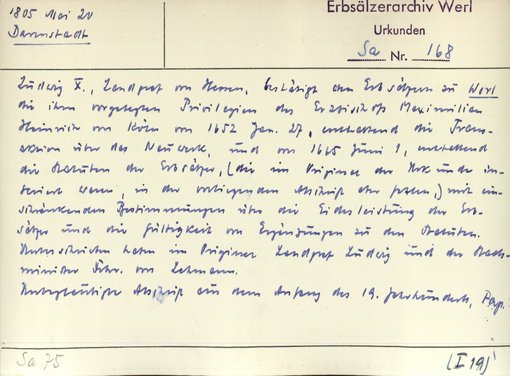 1805 Mai 20
Darmstadt
Erbsälzerarchiv Werl
Urkunden
Sa Nr. 168
Ludwig X., Landgraf von Hessen, bestätigt den Erbsälzern zu Werl
die ihm vorgelegten Privilegien des Erzbischofs Maximilian
Heinrich von Köln von 1652 Jan. 27, enthaltend die Trans-
aktion über das Neuwerk, und von 1665 Juni 1, enthaltend
die Statuten der Erbsälzer, (die im Original der Urkunde in-
seriert waren, in der vorliegenden Abschrift aber fehlen,) mit ein-
schränkenden Bestimmungen über die Eidesleistung der Erb-
sälzer und die Gültigkeit von Ergänzungen zu den Statuten.
Unterschrieben haben im Original Landgraf Ludwig und der Staats-
minister Frhr. von Lehmann.
Unbeglaubigte Abschrift aus dem Anfang des 19. Jahrhunderts, Pap.
Sa 75
(I 19)